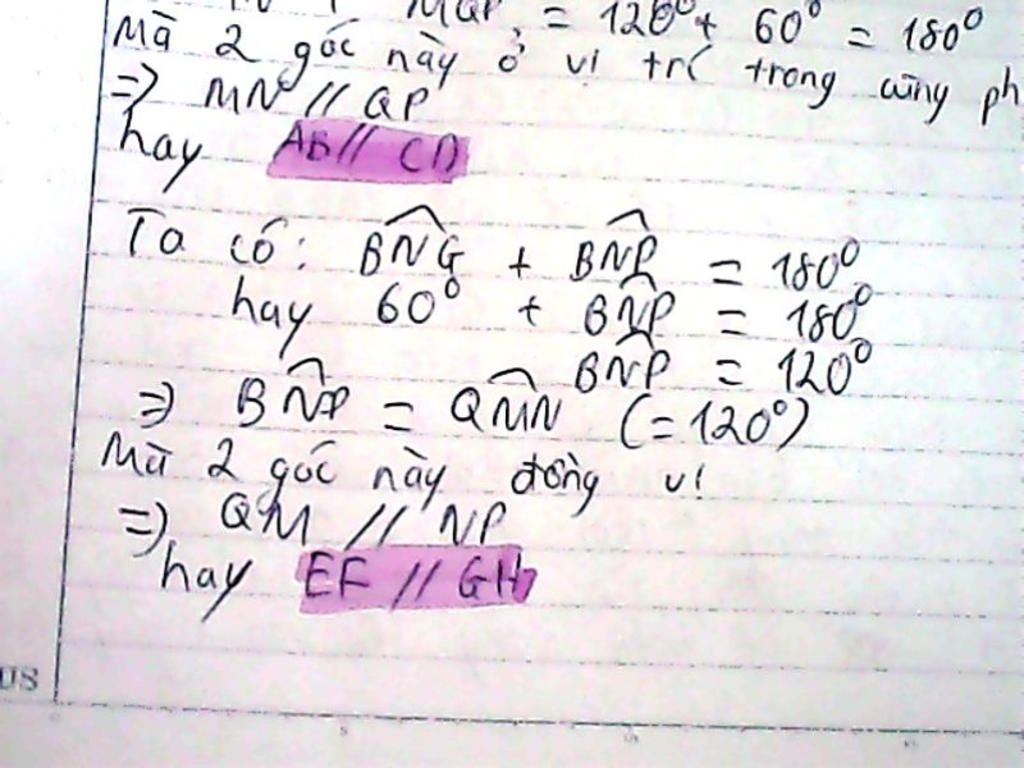 MQP = 120⁰ + 60⁰ = 180⁰
Mà 2 góc này ở vi trí trong cùng ph
=> MN // QP
hay AB // CD
Ta có: BNG + BNP = 180⁰
hay 60⁰ + BNP = 180⁰
BNP = 120⁰
=> BNP = QMN (=120⁰)
Mà 2 góc này đồng vi
=> QM // NP
hay EF // GH
US